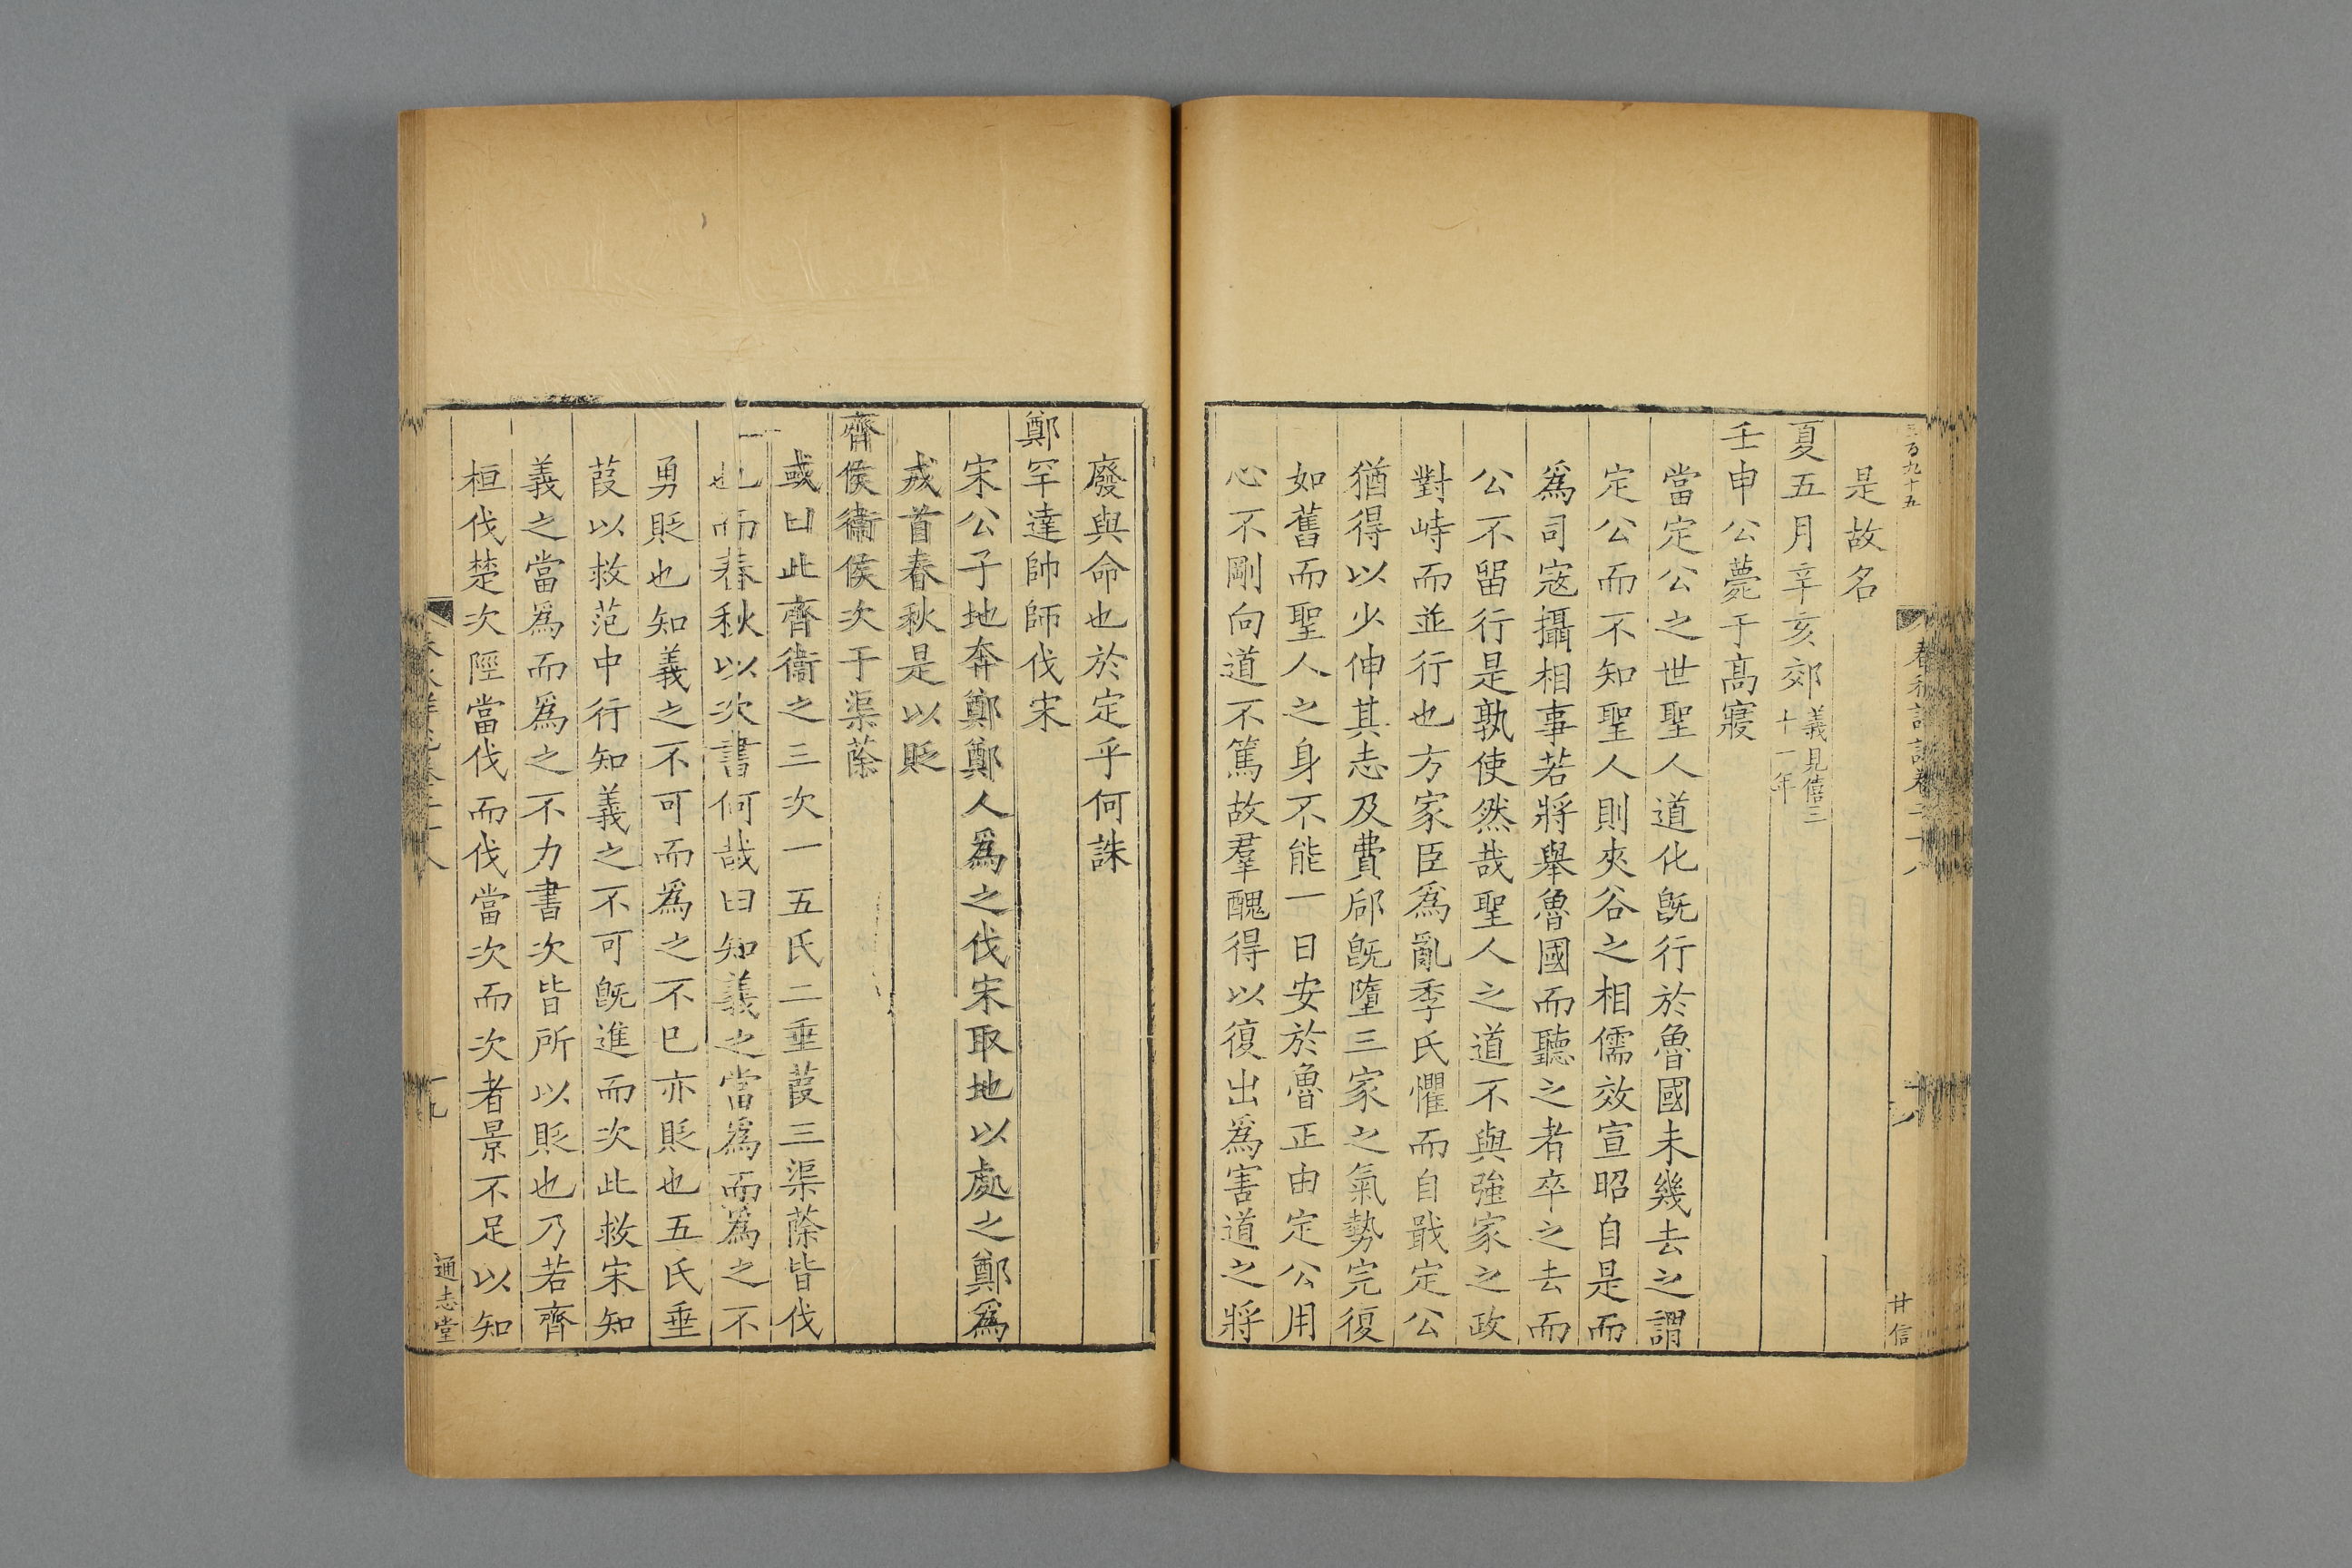 三百九十五
春秋詳說卷二十八
十八
廿信
是故名
夏五月辛亥郊義見僖三十一年
壬申公薨于高寢
當定公之世聖人道化旣行於魯國未幾去之謂
定公而不知聖人則夾谷之相儒效宣昭自是而
爲司寇攝相事若將舉魯國而聽之者卒之去而
公不留行是孰使然哉聖人之道不與強家之政
對峙而並行也方家臣爲亂季氏懼而自戢定公
猶得以少伸其志及費郈旣墮三家之氣勢完復
如舊而聖人之身不能一日安於魯正由定公用
心不剛向道不篤故羣醜得以復出爲害道之將
廢與命也於定乎何誅
鄭罕達帥師伐宋
宋公子地奔鄭鄭人爲之伐宋取地以處之鄭爲
戎首春秋是以貶
齊侯衞侯次于渠蒢
或曰此齊衞之三次一五氏二垂葭三渠蒢皆伐
也而春秋以次書何哉曰知義之當爲而爲之不
勇貶也知義之不可而爲之不已亦貶也五氏垂
葭以救范中行知義之不可旣進而次此救宋知
義之當爲而爲之不力書次皆所以貶也乃若齊
桓伐楚次陘當伐而伐當次而次者景不足以知
春秋詳說卷二十八
十九
通志堂